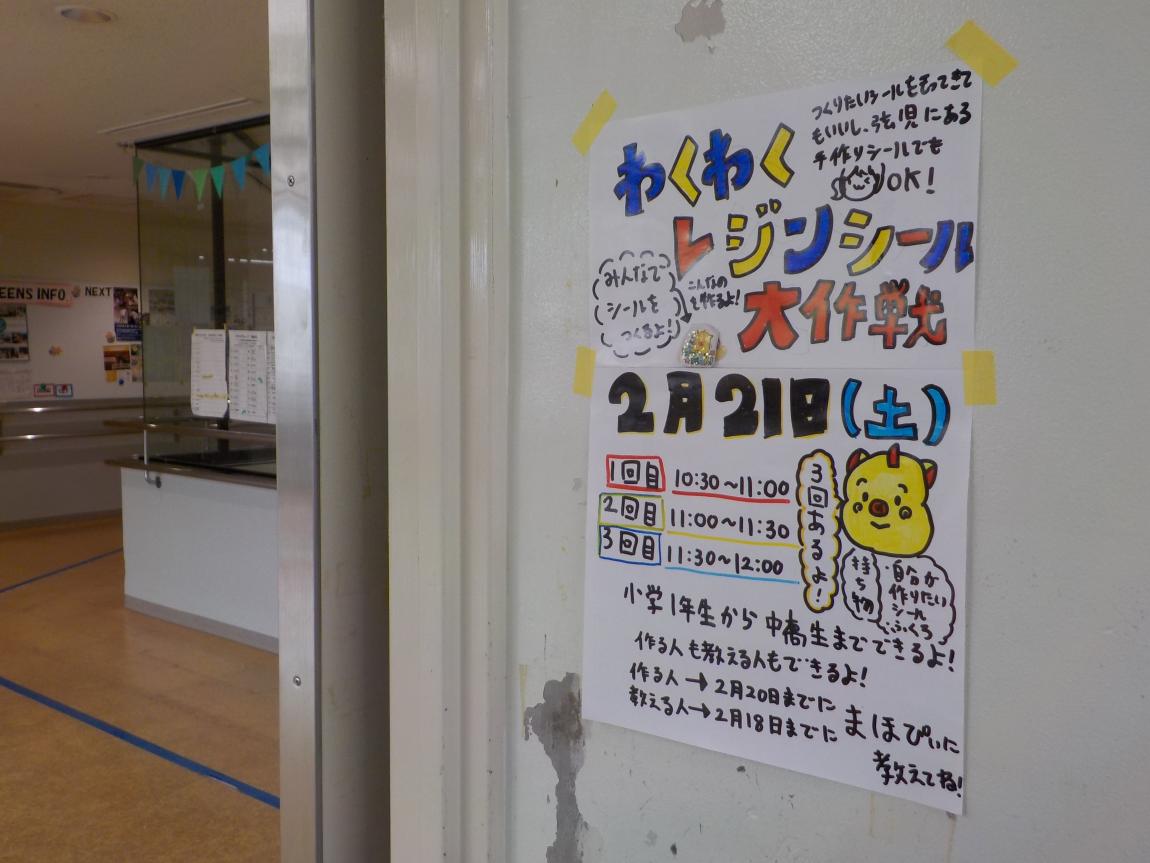 EENS INFO
NEXT
つくりたいシールをもってきて
もいいし、弦児にある
手作りシールでも
OK!
わくわく
レジンシール
大作戦
みんなで
シールを
つくるよ!
こんなの
を作るよ!
2月21日(土)
1回目 10:30~11:00
2回目 11:00~11:30
3回目 11:30~12:00
3回あるよ!
持ち物
・自分が
作りたい
シール
・ふくろ
小学1年生から中高生までできるよ!
作る人も教える人もできるよ!
作る人→2月20日までに
教える人→2月18日までに
まほぴぃに
教えてね!